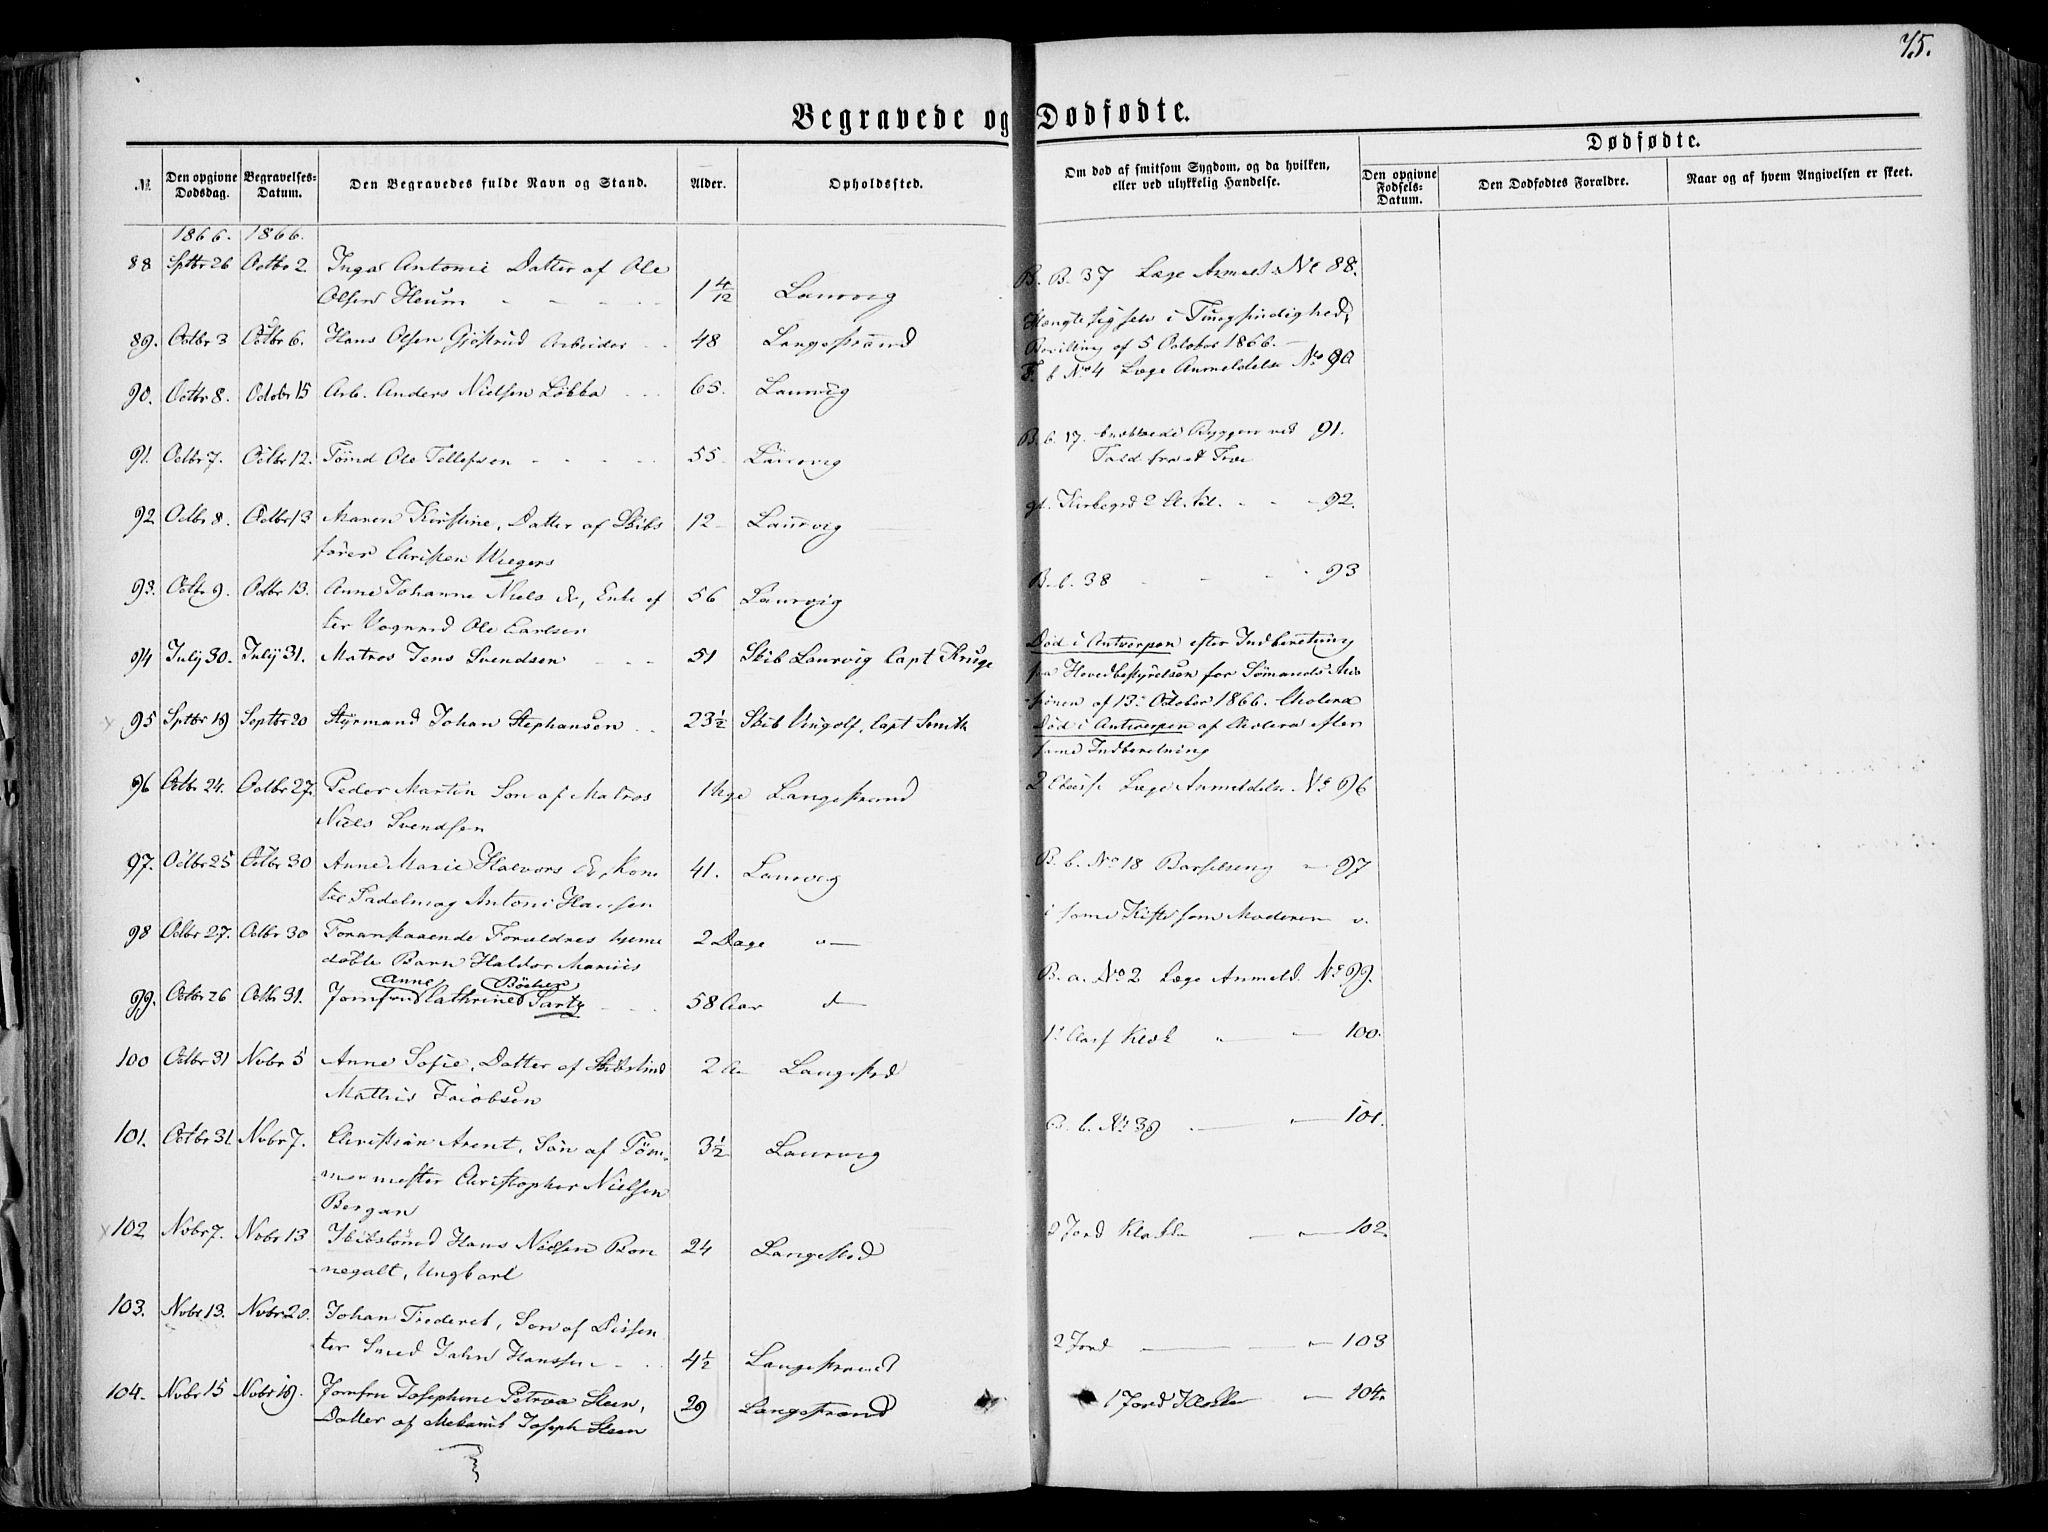 75.
Begravede og Dødfødte.
Dødfødte.
№
Den opgivne Dødsdag.
Begravelses-Datum.
Den Begravedes fulde Navn og Stand.
Alder.
Opholdssted.
Om død af smitsom Sygdom, og da hvilken, eller ved ulykkelig Hændelse.
Den opgivne Fødsels-Datum.
Den Dødfødtes Forældre.
Naar og af hvem Angivelsen er skeet.
1866. 1866.
88 Sptbr 26 Octbr 2 Inga Antonie Datter af Ole
Olsen Heum 1 4/12 Laurvig B. B. 37 Læge Anmelds. № 88.
89. Octbr 3 Octbr 6. Hans Olsen Gjøstrud Arbeider 48 Langestrand Hængte sig selv i Tungsindighed,
Bevilling af 5 October 1866.
90. Octbr 8. Octobr 15 Arb. Anders Nielsen Løbba 65. Laurvig F. b № 4 Læge Anmeldelse № 90
91. Octbr 7. Octbr 12. Tømd Ole Tellefsen 55 Laurvig B. b. 17. brækkede Ryggen ved 91.
Fald fra et Træ
92 Octbr 8. Octbr 13 Maren Kirstine, Datter af Skibs 12 Laurvig gl. Kirkegrd 2 92.
fører Christen Wiegers
93. Octbr 9. Octbr 13. Anne Johanne Niels d., Enke ef 56 Laurvig B. b. 38 93
ter Vognmd Ole Carlsen
94 July 30. July 31. Matros Jens Svendsen 51 Skib Laurvig Capt Kruge Død i Antwerpen efter Indberetning
fra Hovedbestyrelsen for Sømands Mis
sionen af 13de October 1866. Cholera
95 Sptbr 19 Septbr 20 Styrmand Johan Stephansen 23½ Skib Vingolf, Capt Smith Død i Antwerpen af Cholera efter
same Indberetning
96 Octbr 24. Octbr 27. Peder Martin Søn af Matros 1 Uge Langestrand 2 Læge Anmeldelse № 96
Niels Svendsen
97. Octbr 25 Octbr 30 Anne Marie Halvors d., Kone 41. Laurvig B. b. № 18 Barselseng 97
til Sadelmag Antoni Hansen
98 Octbr 27. Octbr 30 Foranstaaende Forældres hjeme 2 Dage i same Kiste som Moderen
døbte Barn Haldor Marius
99. Octbr 26 Octbr 31. Jomfru Anne Cathrine Böcher Sartz 58 Aar d B. a. № 2 Læge Anmeld. № 99.
100 Octbr 31 Novbr 5 Anne Sofie, Datter af Skibstømd 2 Langestrd 1ste Class 100.
Mathis Jacobsen
101. Octbr 31. Novbr 7. Christian Arent, Søn af Tøm- 3½ Laurvig B. b. № 39 101.
mermester Christopher Nielsen
Bergan
102 Novbr 7. Novbr 13 Skibstømd Hans Nielsen Ron 24 Langestrd 2 Jord Klasse 102.
negalt, Ungkarl
103. Novbr 13. Novbr 20. Johan Frederek, Søn af Dissen
ter Smed John Hanssen 4½ Langestrand 2 Jord 103
104. Novbr 15 Novbr 19. Jomfru Josephine Petrea Steen, 29 Langestrand 1 Jord Klasse 104.
Datter af Mekanik Joseph Steen